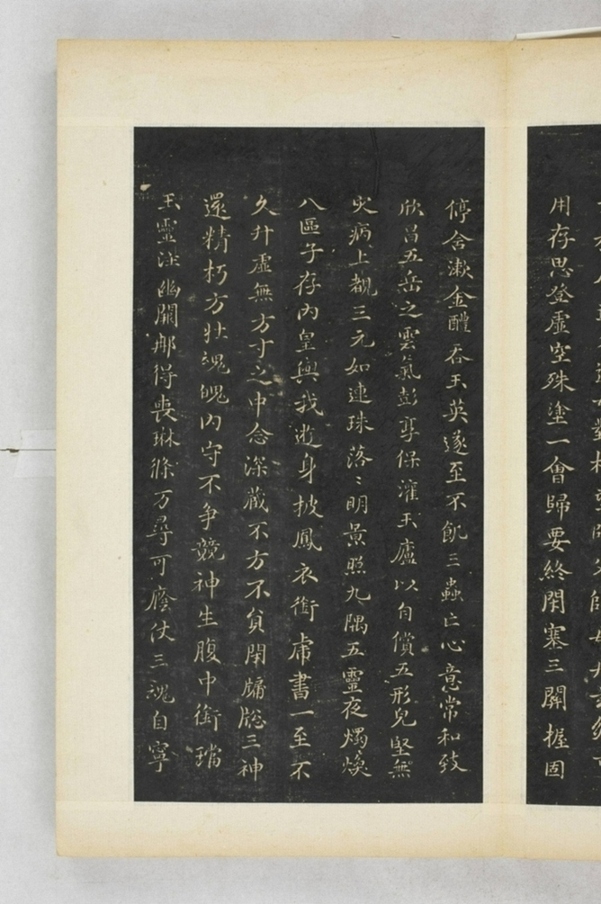 用存思登虛空殊塗一會歸要終閉塞三關握固
停舍漱金醴吞玉英遂至不飢三蟲亡心意常和致
欣昌五岳之雲氣彭亨保灌玉廬以自償五形完堅無
災病上觀三元如連珠落〻明景照九隅五靈夜燭煥
八區子存內皇與我遊身披鳳衣銜虎書一至不
久升虛無方寸之中念深藏不方不員閉牖牕三神
還精朽方壯魂魄內守不爭競神生腹中銜璫
玉靈注幽闕那得喪琳條万尋可廕仗三魂自寧